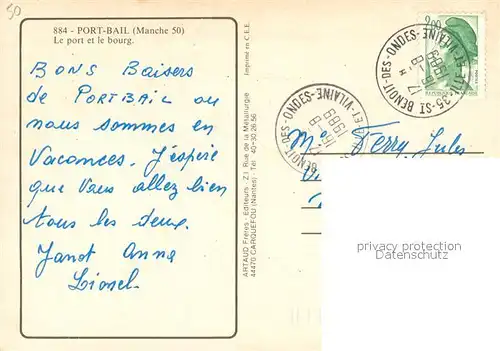 50
884 - PORT-BAIL (Manche 50)
Le port et le bourg.
BONS Baisers
de PORTBAIL ou
nous sommes en
Vacances. J'espère
que Vous allez bien
tous les deux.
Janot Anna
Lionel
Imprimé en C.E.E.
ARTAUD Frères - Editeurs - Z.I. Rue de la Métallurgie
44470 CARQUEFOU (Nantes) - Tél. 40-30 26 56
35-ST BENOIT-DES-ONDES-ILLE-ET-VILAINE
17 H
-8
1989
BENOIT-DES-ONDES-ILLE-ET-VILAINE
16 H
-8
1989
2,00
Ferry Jules
privacy protection
watermark